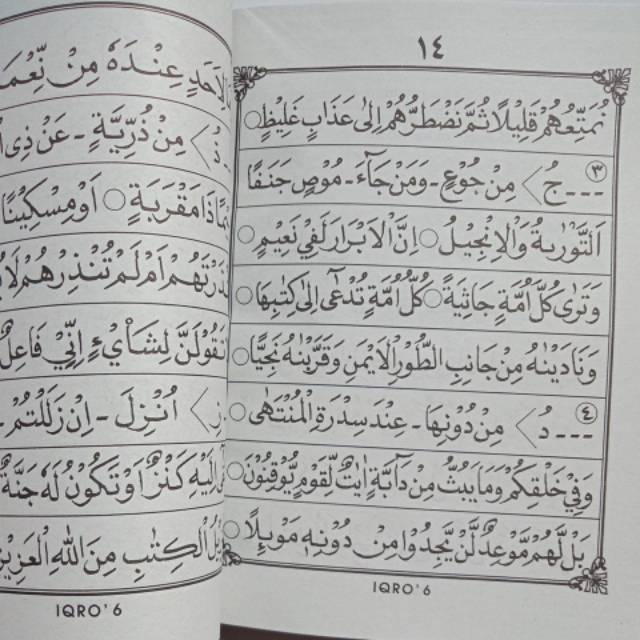 ١٤
نُمَتِّعُهُمْ قَلِيْلًا ثُمَّ نَضْطَرُّهُمْ اِلٰى عَذَابٍ غَلِيْظٍ ○
٣ --- جُ > مِنْ جُوْعٍ - وَمَنْ جَآءَ - مُوْصٍ جَنَفًا
اَلتَّوْرٰىةُ وَالْاِنْجِيْلُ ○ اِنَّ الْاَبْرَارَ لَفِيْ نَعِيْمٍ ○
وَتَرٰى كُلَّ اُمَّةٍ جَاثِيَةً ○ كُلُّ اُمَّةٍ تُدْعٰٓى اِلٰى كِتٰبِهَا ○
وَنَادَيْنٰهُ مِنْ جَانِبِ الطُّوْرِ الْاَيْمَنِ وَقَرَّبْنٰهُ نَجِيًّا ○
٤ --- دُ > مِنْ دُوْنِهَا - عِنْدَ سِدْرَةِ الْمُنْتَهٰى ○
وَفِيْ خَلْقِكُمْ وَمَا يَبُثُّ مِنْ دَآبَّةٍ اٰيٰتٌ لِّقَوْمٍ يُّوْقِنُوْنَ ○
بَلْ لَّهُمْ مَّوْعِدٌ لَّنْ يَّجِدُوْا مِنْ دُوْنِهٖ مَوْئِلًا ○
IQRO' 6
لِاَحَدٍ عِنْدَهٗ مِنْ نِّعْمَ
ذُ > مِنْ ذُرِّيَّةٍ - عَنْ ذِى
ذَا مَقْرَبَةٍ ○ اَوْ مِسْكِيْنًا
ذَرْتَهُمْ اَمْ لَمْ تُنْذِرْهُمْ لَا
تَقُوْلَنَّ لِشَا۟يْءٍ اِنِّيْ فَاعِلٌ
ز > اُنْزِلَ - اِنْ زَلَلْتُمْ -
اِلَيْهِ كَنْزٌ اَوْ تَكُوْنُ لَهٗ جَنَّةٌ
الْكِتٰبِ مِنَ اللّٰهِ الْعَزِيْزِ
IQRO' 6